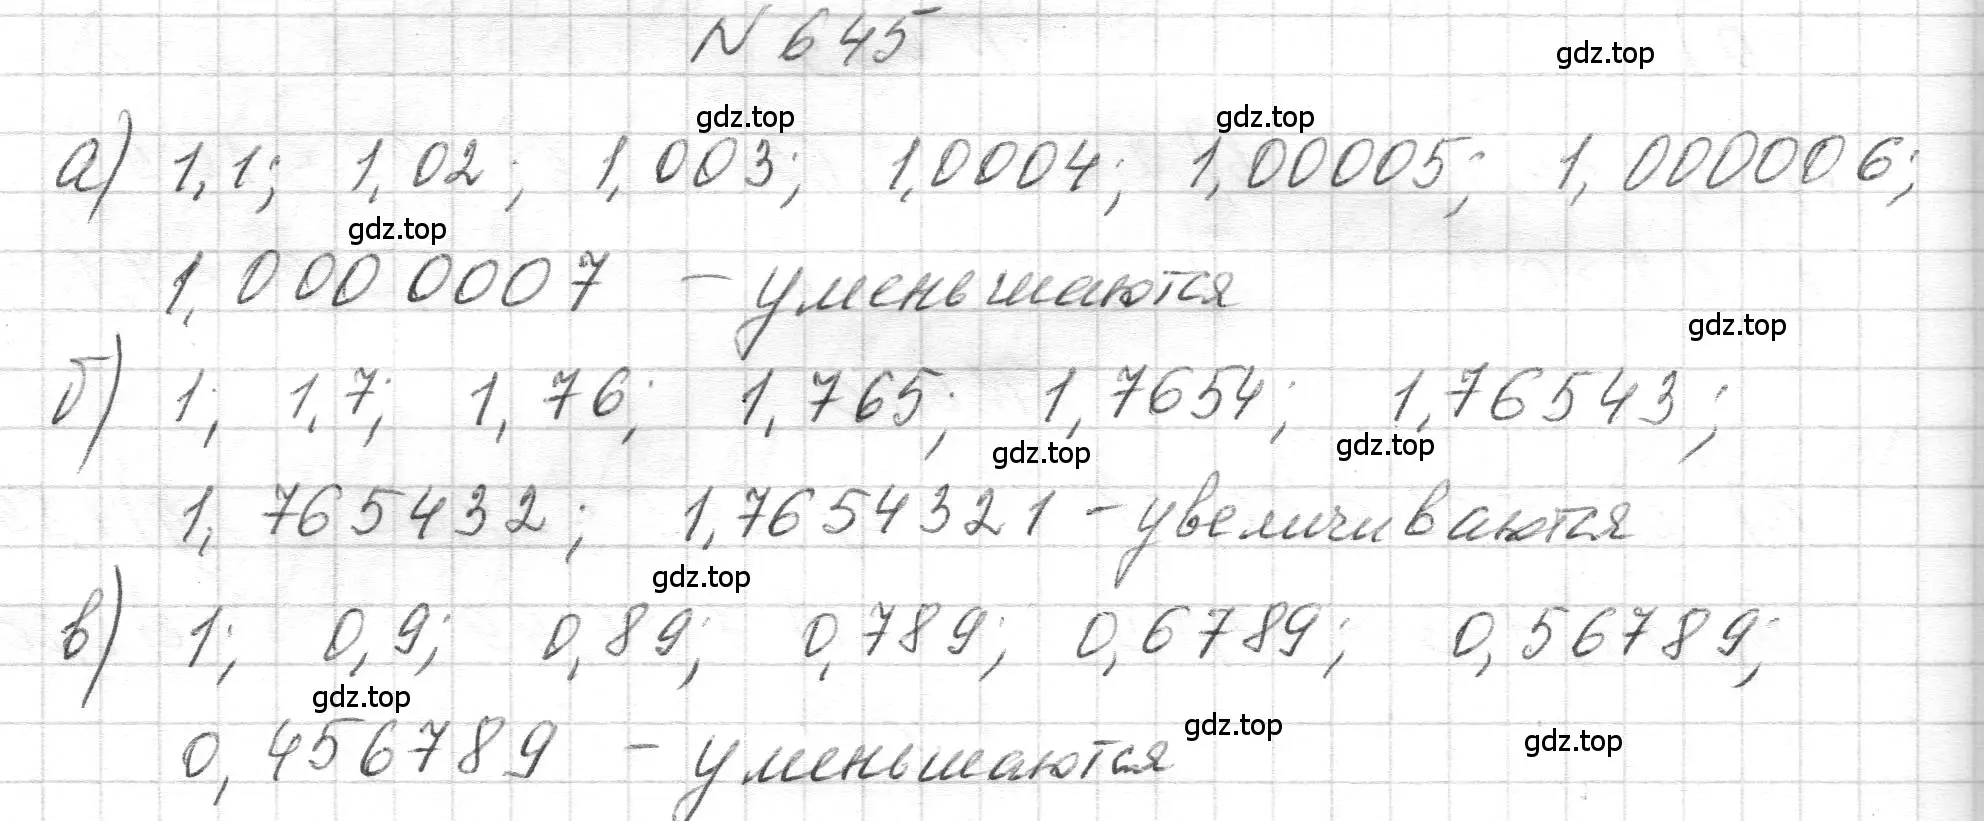 N 645
gdz.top
gdz.top gdz.top
а) 1,1; 1,02; 1,003; 1,0004; 1,00005; 1,000006;
gdz.top
1,0000007 - уменьшаются
gdz.top
б) 1; 1,7; 1,76; 1,765; 1,7654; 1,76543;
gdz.top gdz.top
1,765432; 1,7654321 - увеличиваются
gdz.top
в) 1; 0,9; 0,89; 0,789; 0,6789; 0,56789;
gdz.top
0,456789 - уменьшаются
gdz.top gdz.top